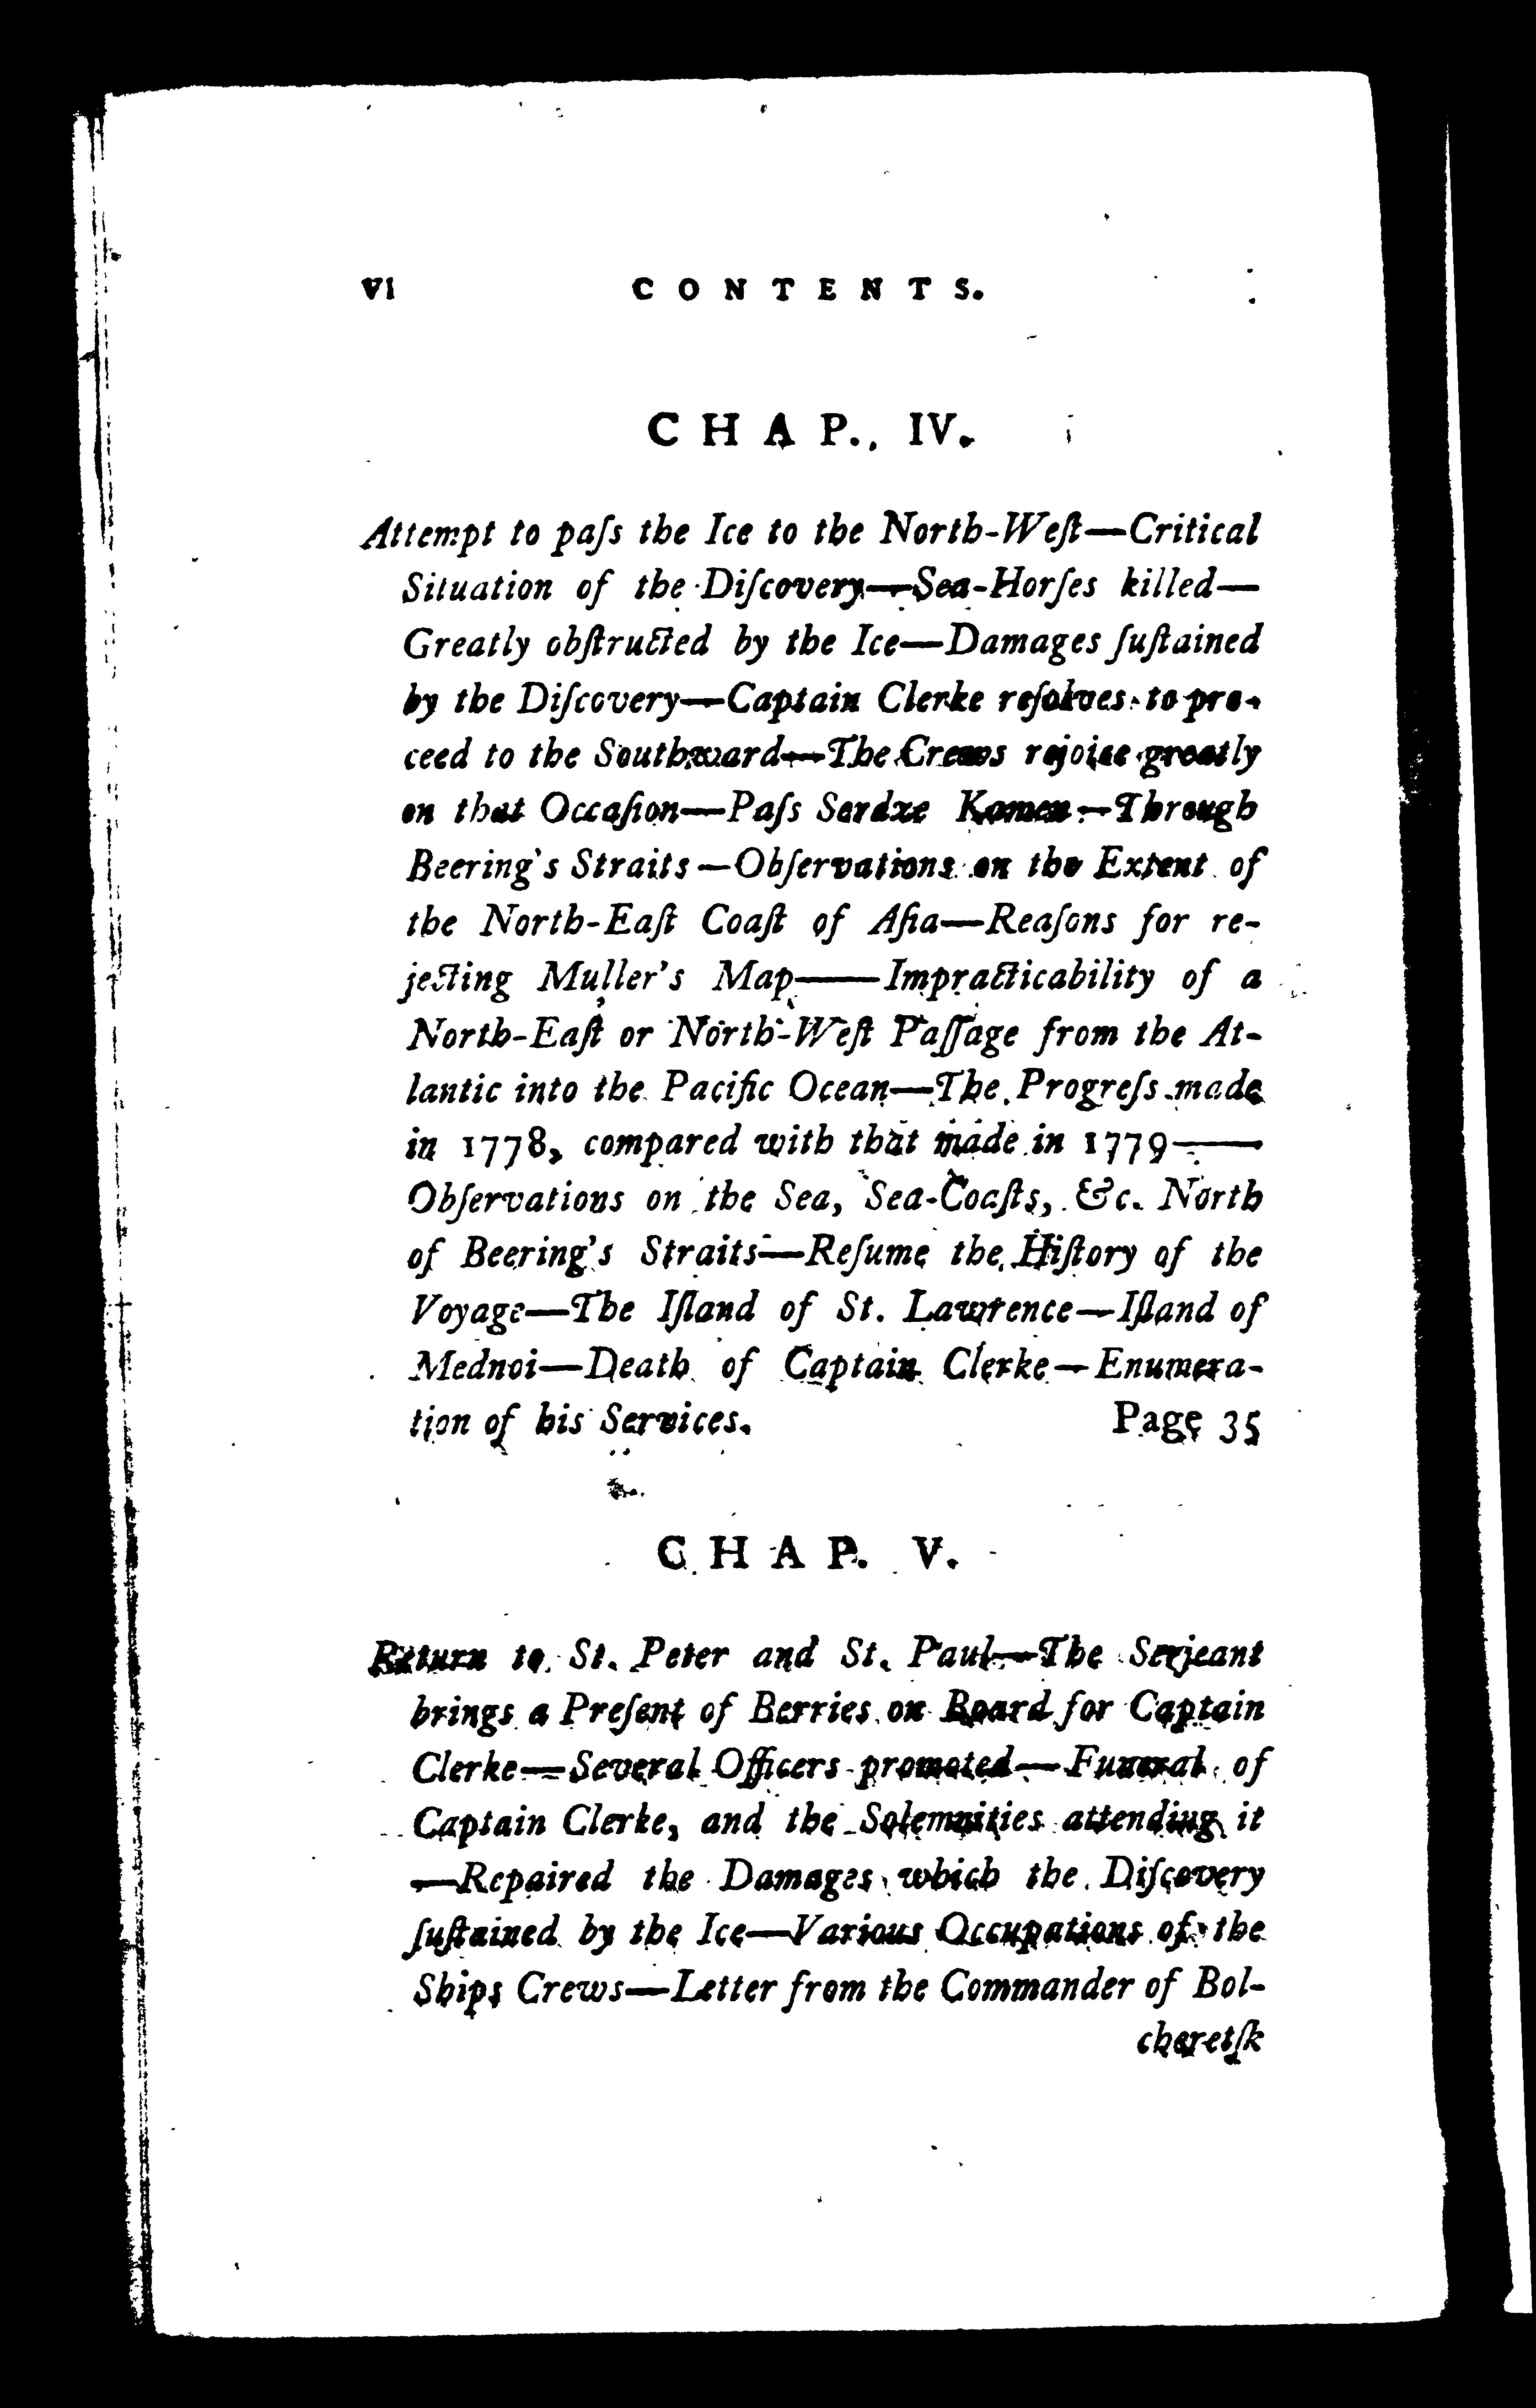 vi CONTENTS.
CHAP. IV.
Attempt to paſs the Ice to the North-Weſt—Critical
Situation of the Diſcovery—Sea-Horſes killed—
Greatly obſtructed by the Ice—Damages ſuſtained
by the Diſcovery—Captain Clerke reſolves to pro-
ceed to the Southward—The Crews rejoice greatly
on that Occaſion—Paſs Serdze Kamen—Through
Beering's Straits—Obſervations on the Extent of
the North-Eaſt Coaſt of Aſia—Reaſons for re-
jecting Muller's Map——Impracticability of a
North-Eaſt or North-Weſt Paſſage from the At-
lantic into the Pacific Ocean—The Progreſs made
in 1778, compared with that made in 1779——
Obſervations on the Sea, Sea-Coaſts, &c. North
of Beering's Straits—Reſume the Hiſtory of the
Voyage—The Iſland of St. Lawrence—Iſland of
Mednoi—Death of Captain Clerke—Enumera-
tion of his Services. Page 35
CHAP. V.
Return to St. Peter and St. Paul—The Serjeant
brings a Preſent of Berries on Board for Captain
Clerke—Several Officers promoted—Funeral of
Captain Clerke, and the Solemnities attending it
—Repaired the Damages which the Diſcovery
ſuſtained by the Ice—Various Occupations of the
Ships Crews—Letter from the Commander of Bol-
cheretſk